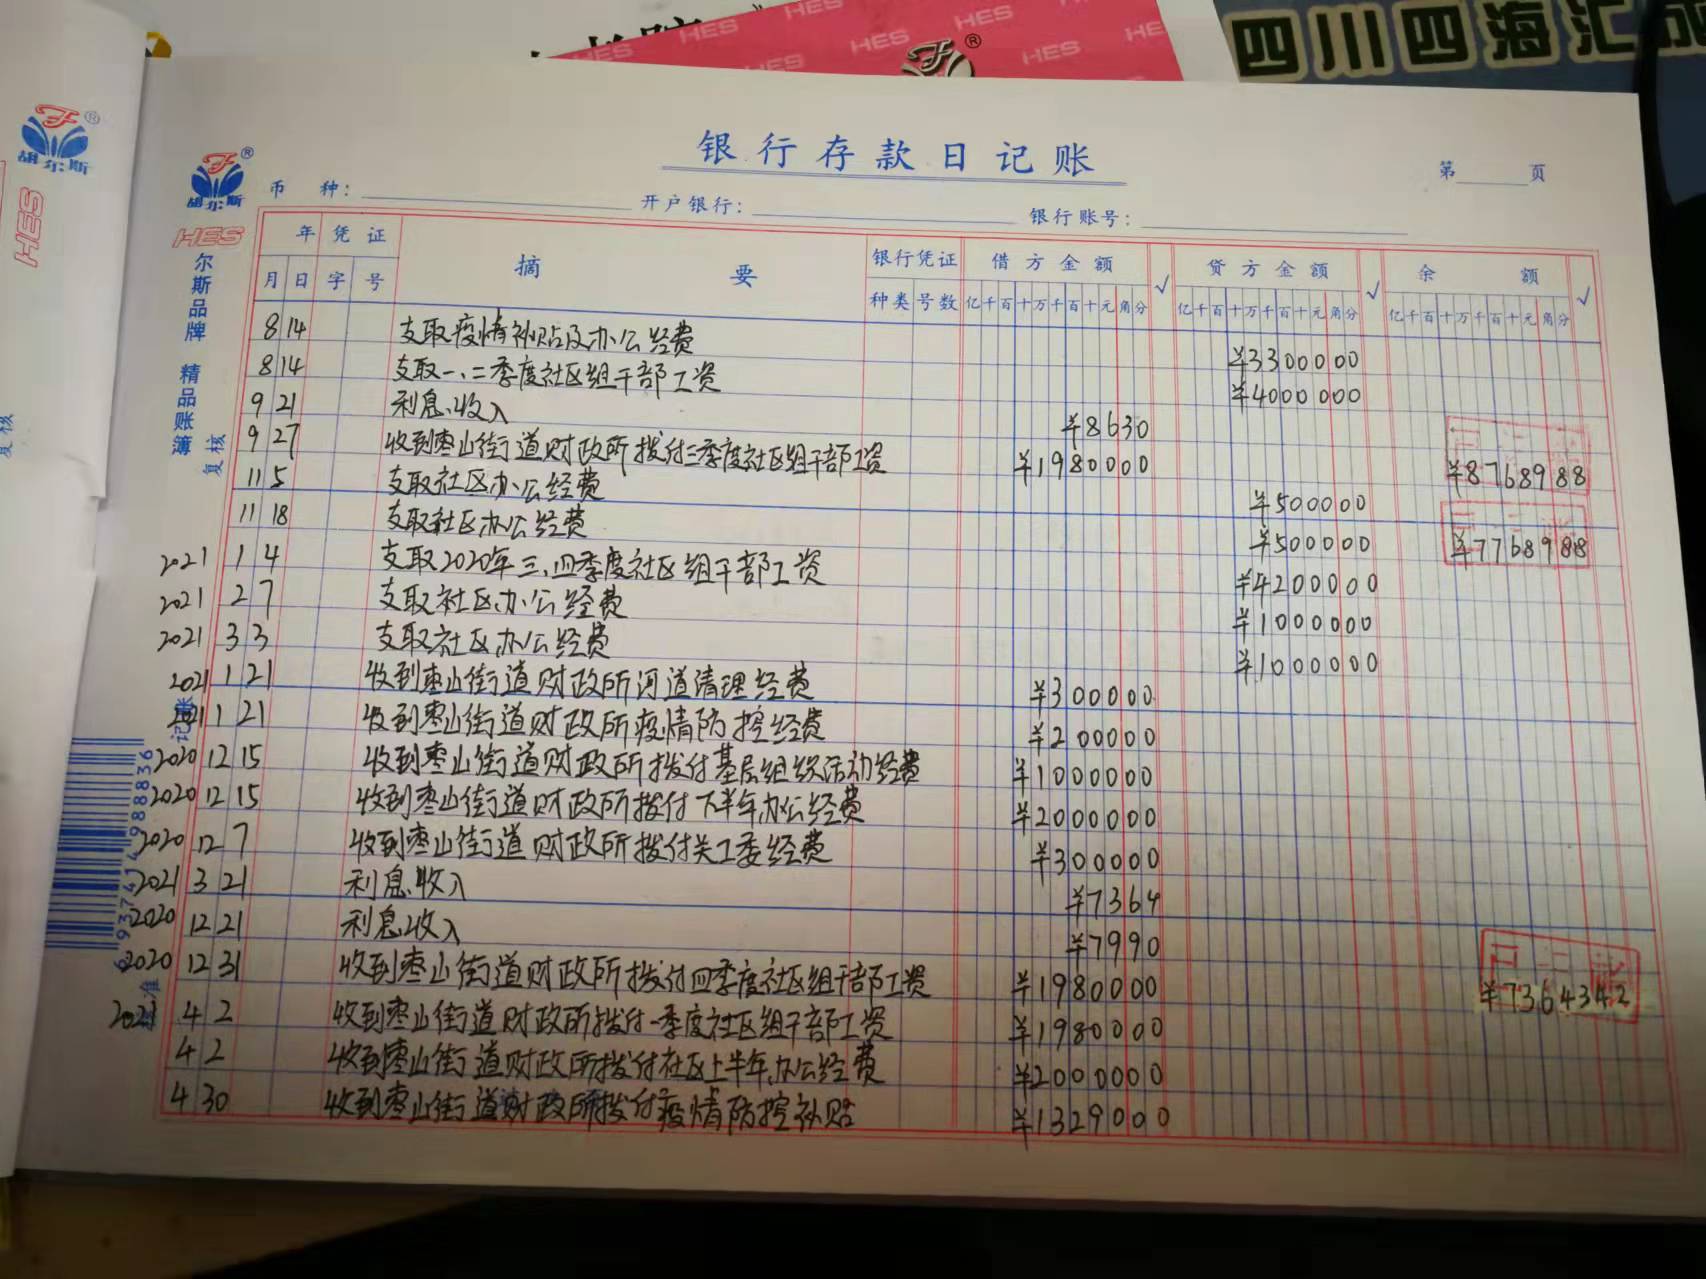 四川四海汇
HES HES HES HES HES HES
胡尔斯
HES
胡尔斯
HES
银行存款日记账
第 页
币 种: 开户银行: 银行账号:
年 凭证 摘 要 银行凭证 借方金额 √ 贷方金额 √ 余 额 √
月 日 字 号 种类 号数 亿千百十万千百十元角分 亿千百十万千百十元角分 亿千百十万千百十元角分
8 14 支取疫情补贴及办公经费 ¥3300000
8 14 支取一、二季度社区组干部工资 ¥4000000
9 21 利息收入 ¥8630
9 27 收到枣山街道财政所拨付三季度社区组干部工资 ¥1980000 ¥8768988
11 5 支取社区办公经费 ¥500000
11 18 支取社区办公经费 ¥500000 ¥7768988
2021 1 4 支取2020年三、四季度社区组干部工资 ¥4200000
2021 2 7 支取社区办公经费 ¥1000000
2021 3 3 支取社区办公经费 ¥1000000
2021 1 21 收到枣山街道财政所河道清理经费 ¥300000
2021 1 21 收到枣山街道财政所疫情防控经费 ¥200000
2020 12 15 收到枣山街道财政所拨付基层组织活动经费 ¥1000000
2020 12 15 收到枣山街道财政所拨付下半年办公经费 ¥2000000
2020 12 7 收到枣山街道财政所拨付关工委经费 ¥300000
2021 3 21 利息收入 ¥7364
2020 12 21 利息收入 ¥7990
2020 12 31 收到枣山街道财政所拨付四季度社区组干部工资 ¥1980000 ¥7364342
2021 4 2 收到枣山街道财政所拨付一季度社区组干部工资 ¥1980000
4 2 收到枣山街道财政所拨付社区上半年办公经费 ¥2000000
4 30 收到枣山街道财政所拨付疫情防控补贴 ¥1329000
尔斯品牌 精品账簿
复核
记账
6 937474 988836
准
复核